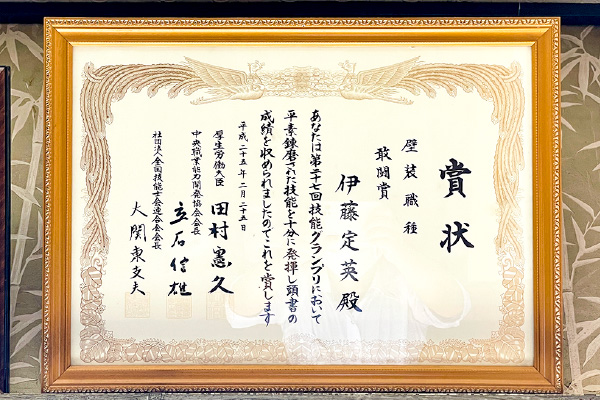 賞状
壁装職種
敢闘賞
伊藤定英殿
あなたは第二十七回技能グランプリにおいて
平素錬磨された技能を十分に発揮し頭書の
成績を収められましたのでこれを賞します
平成二十五年二月二十五日
厚生労働大臣 田村憲久
中央職業能力開発協会会長 立石信雄
社団法人全国技能士会連合会会長 大関東支夫